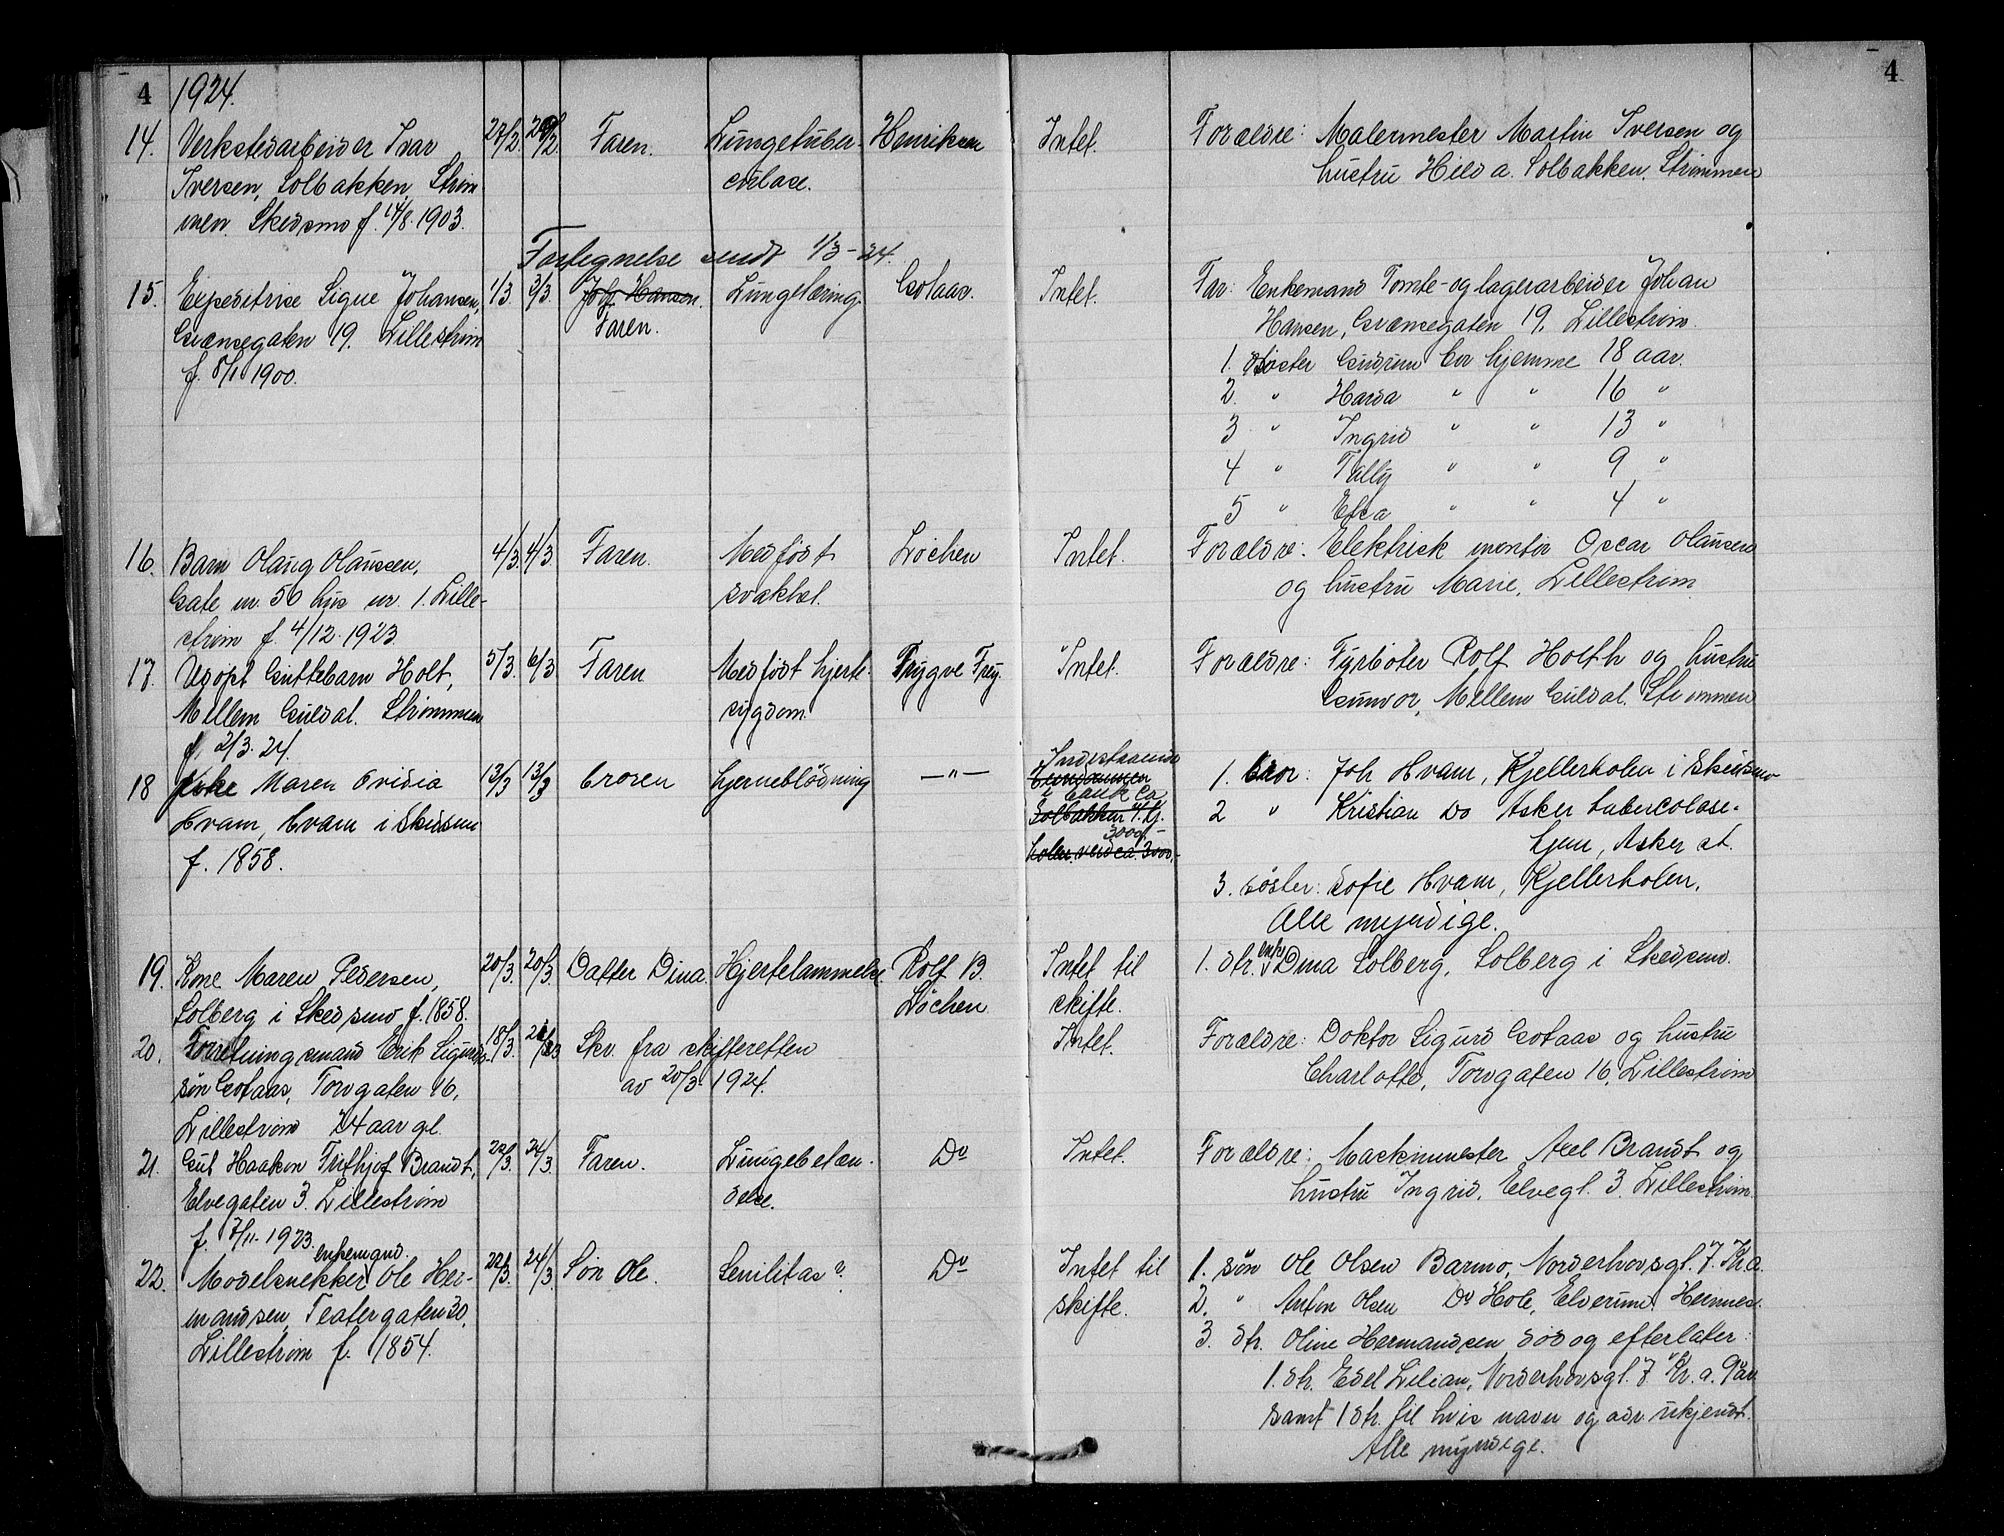 4 1924. 4
14. Verkstedarbeider Ivar 27/2 29/2 Faren. Lungetuber- Henriksen Intet. Forældre: Malermester Martin Iversen og
Iversen, Solbakken, Strøm culose. hustru Hilda. Solbakken. Strømmen
men. Skedsmo f. 14/8. 1903.
Fortegnelse sendt 1/3-24.
15. Expeditrise Signe Johansen, 1/3. 3/3. Joh Hansen. Lungetæring. Gotaas. Intet. Far: Enkemand Tomte- og lagerarbeider Johan
Grænsegaten 19. Lillestrøm Faren. Hansen, Grænsegaten 19, Lillestrøm.
f. 8/1 1900. 1. søster Gudrun bor hjemme 18 aar.
2. " Harda " " 16 "
3 " Ingrid " " 13 "
4 " Tully " " 9 "
5 " Elsa " " 4 "
16. Barn Olaug Olaussen, 4/3. 4/3. Faren. Medfødt Løchen Intet. Forældre: Elektrisk montør Oscar Olaussen
Gate nr. 50 hus nr. 1. Lille- svakhet. og hustru Marie, Lillestrøm
strøm f. 4/12. 1923
17. Udøpt Guttebarn Holt, 5/3. 6/3 Faren Medfødt hjerte- Trygve Frey. Intet. Forældre: Fyrbøter Rolf Holth og hustru
Mellem Guldal. Strømmen sygdom. Gunvor, Mellem Guldal. Strømmen
f. 2/3. 24.
18 Maren Ovidia 13/3 13/3 Broren hjerneblødning —"— Indestaaende
i bank ca
3000,- 1. bror: Joh Hvam, Kjellerholen i Skedsmo
Hvam, Hvam i Skedsmo Solbakken 2 " Kristian Do Asker tubercolose-
f. 1858. verd ca. 3000,- hjem, Asker st.
3. søster: Sofie Hvam, Kjellerholen.
Alle myndige.
19. Kone Maren Pedersen, 20/3. 20/3. Datter Dina. Hjertelammelse. Rolf B. Intet til 1. dtr. enke Dina Solberg, Solberg i Skedsmo.
Solberg i Skedsmo f. 1858. Løchen skifte.
20. Forretningsmand Erik Sigurd- 18/3. Skr. fra skifteretten Intet. Forældre: Doktor Sigurd Gotaas og hustru
søn Gotaas, Torvgaten 16, av 20/3 1924. Charlotte, Torvgaten 16, Lillestrøm
Lillestrøm 24 aar gl.
21. Gut Haakon Frithjof Brandt, 22/3. 24/3 Faren. Lungebetæn- Do Intet. Forældre: Maskinmester Axel Brandt og
Elvegaten 3. Lillestrøm delse. hustru Ingrid, Elvegt. 3. Lillestrøm.
f. 7/11. 1923.
enkemand.
22. Modelsnekker Ole Her- 22/3. 24/3. Søn Ole. Senilitas? Do Intet til 1. søn Ole Olsen Barmo, Norderhovsgt. 7. Kr.a.
mandsen, Teatergaten 30, skifte. 2. " Anton Olsen Do Hole, Elverum. Hernes.
Lillestrøm f. 1854. 3. dtr. Oline Hermandsen død og efterlater:
1. dtr. Edel Lilian, Norderhovsgt. 7 Kr.a. 9 aar
samt 1 dtr. til hvis navn og adr. ukjendt.
Alle myndige.